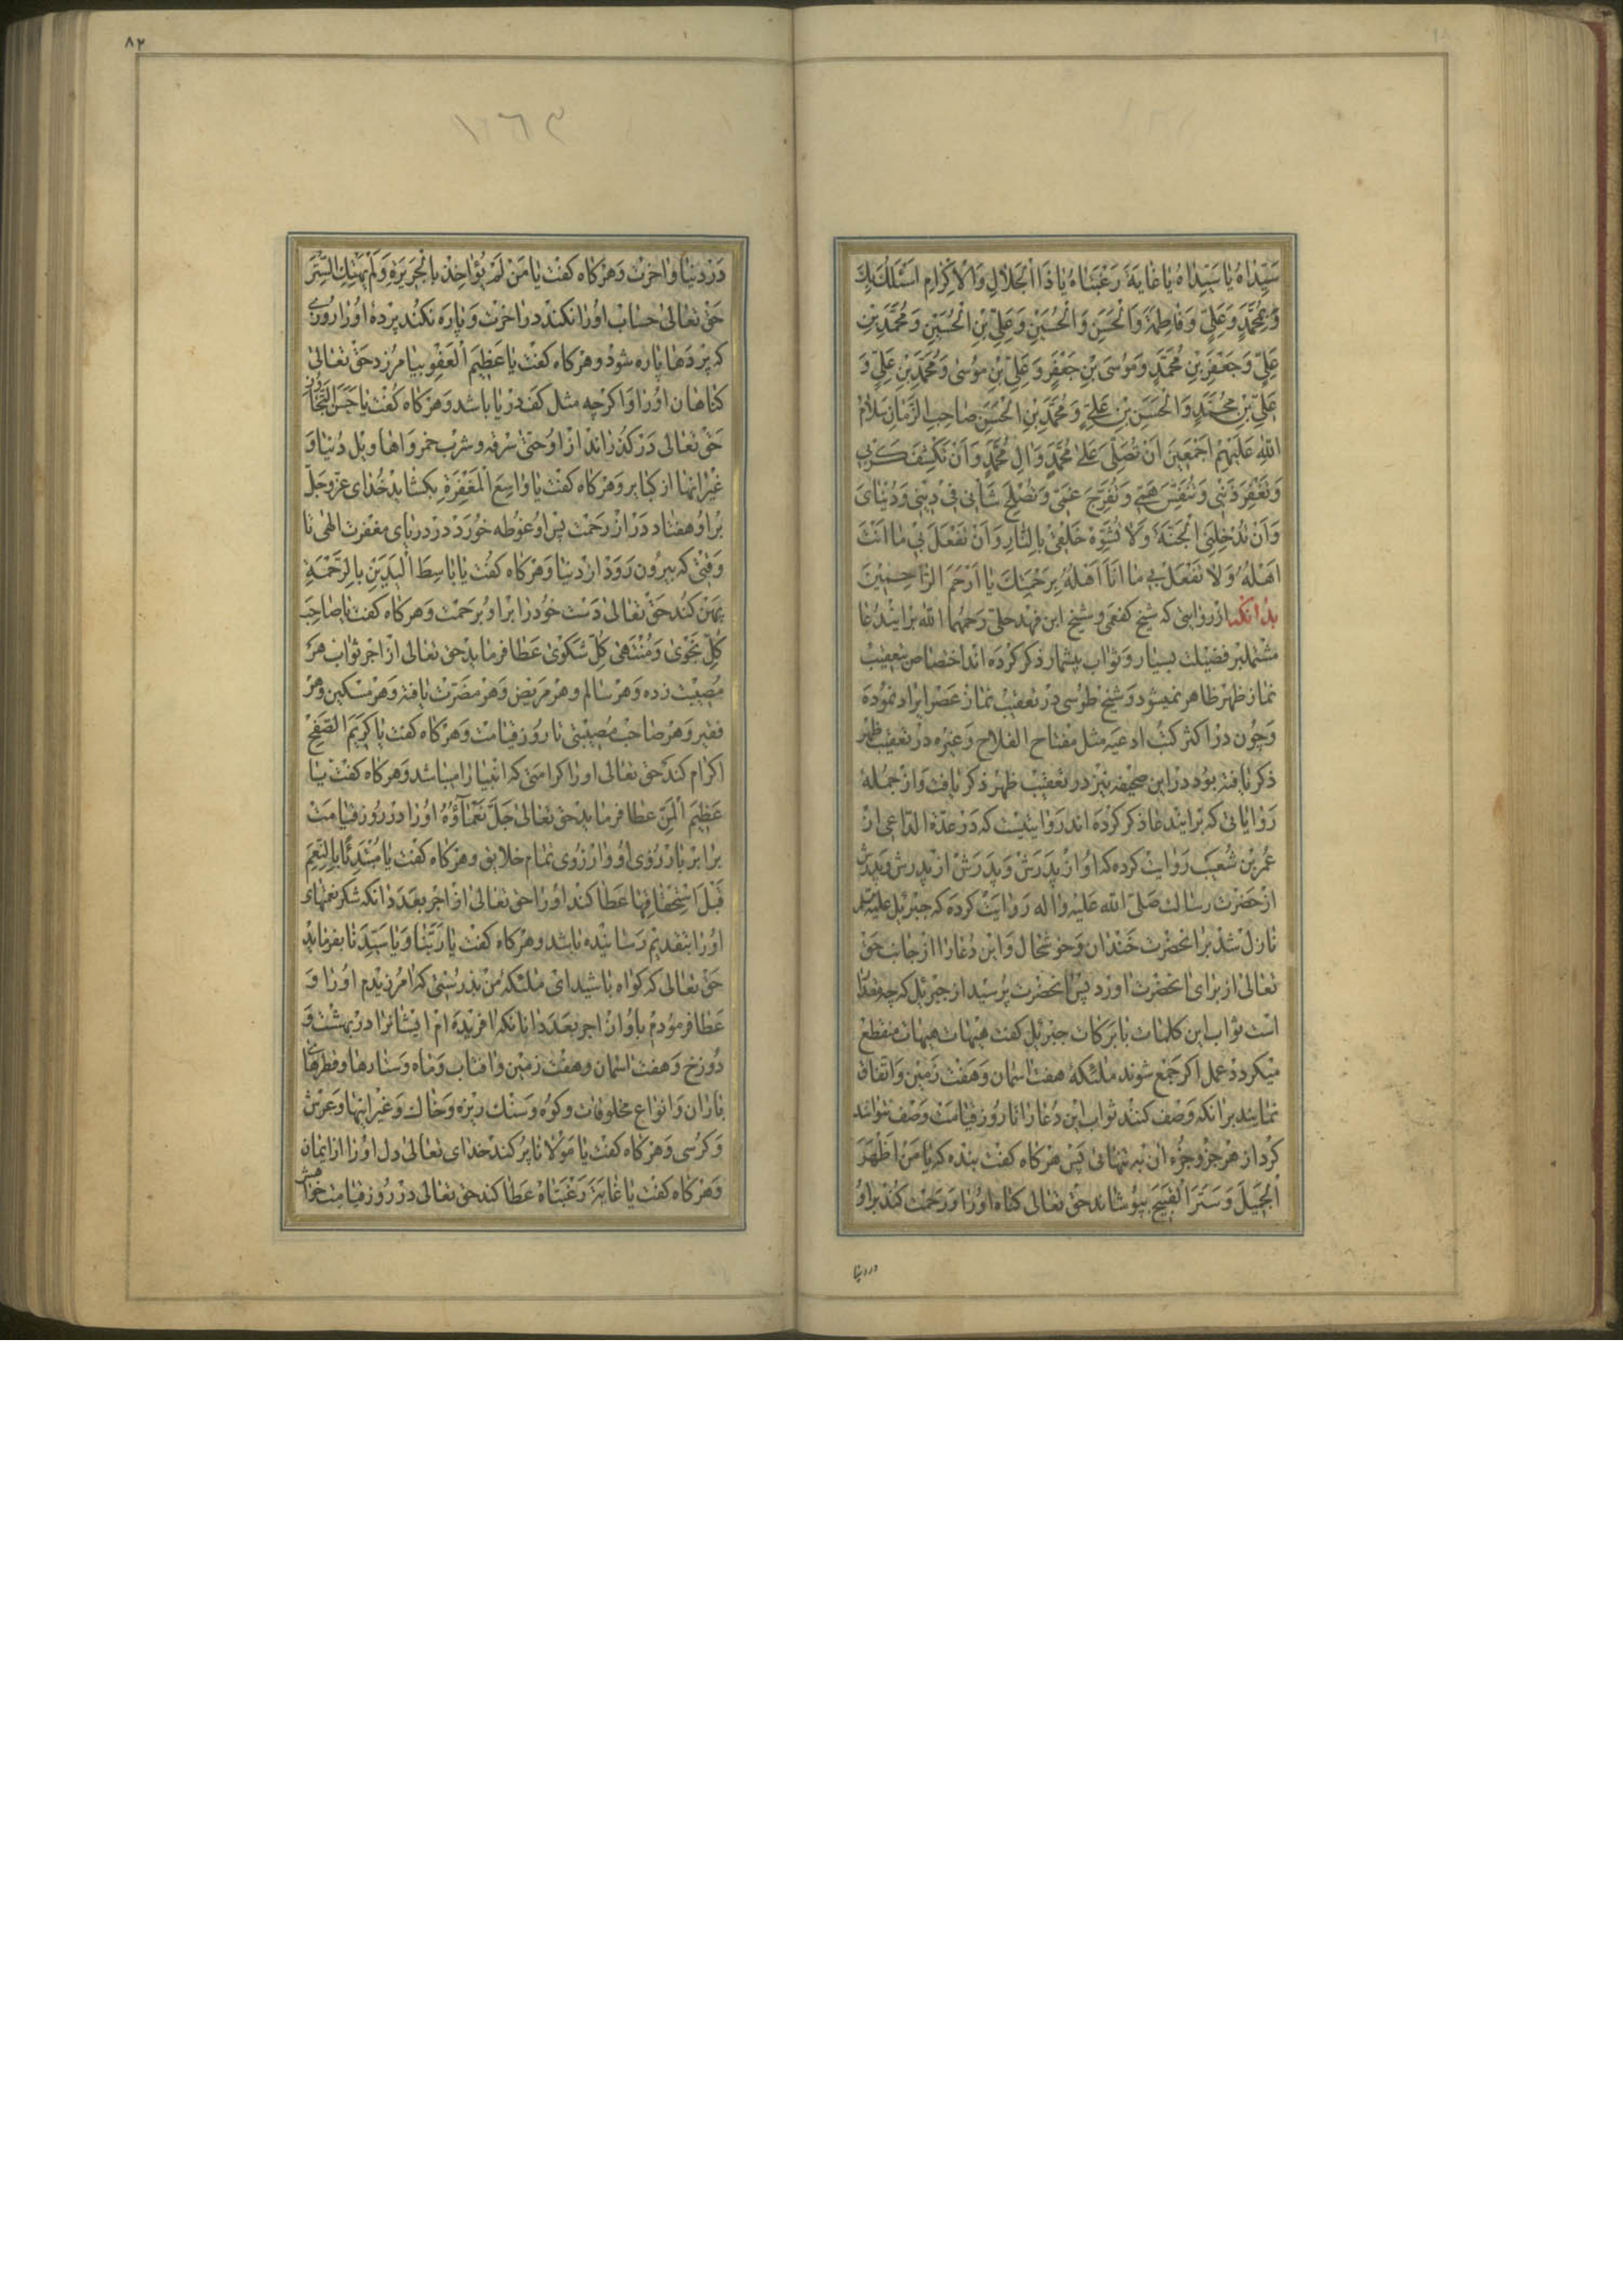 سَیِّداهُ یا سَیِّداهُ یا غایَةَ رَغبَتاهُ یا ذَا الجَلالِ وَالاِکرامِ اَسئَلُکَ بِکَ
وَ بِمُحَمَّدٍ وَ عَلِیٍّ وَ فاطِمَةَ وَ الحَسَنِ وَ الحُسَینِ وَ عَلِیِّ بنِ الحُسَینِ وَ مُحَمَّدِ بنِ
عَلِیٍّ وَ جَعفَرِ بنِ مُحَمَّدٍ وَ مُوسَی بنِ جَعفَرٍ وَ عَلِیِّ بنِ مُوسٰی وَ مُحَمَّدِ بنِ عَلِیٍّ وَ
عَلِیِّ بنِ مُحَمَّدٍ وَ الحَسَنِ بنِ عَلِیٍّ وَ مُحَمَّدِ بنِ الحَسَنِ صاحِبِ الزَّمانِ سَلامُ
اللهِ عَلَیهِم اَجمَعینَ اَن تُصَلِّیَ عَلٰی مُحَمَّدٍ وَ الِ مُحَمَّدٍ وَ اَن تَکشِفَ کَربی
وَ تَغفِرَ ذَنبی وَ تُنَفِّسَ هَمّی وَ تُفَرِّجَ غَمّی وَ تُصلِحَ شَانی فی دینی وَ دُنیایَ
وَ اَن تُدخِلَنِی الجَنَّةَ وَ لا تُشَوِّهَ خَلقی بِالنّارِ وَ اَن تَفعَلَ بی ما اَنتَ
اَهلُهُ وَ لا تَفعَلَ بی ما اَنَا اَهلُهُ بِرَحمَتِکَ یا اَرحَمَ الرّاحِمینَ
بدانکه از روایتی که شیخ کفعمی و شیخ ابن فهد حلی رحمهما الله برایندعا
مشتملبر فضیلت بسیار و ثواب بیشمار ذکر کرده اند اختصاص بتعقیب
نماز ظهر ظاهر نمیشود و شیخ طوسی در تعقیب نماز عصر ایراد نموده
و چون در اکثر کتب ادعیه مثل مفتاح الفلاح و غیره در تعقیب ظهر
ذکر یافته بود در این صحیفه نیز در تعقیب ظهر ذکر یافت و از جمله
روایاتی که برایندعا ذکر کرده اند روایتیست که در عدة الداعی از
عمر بن شعیب روایت کرده که او از پدرش و پدرش از پدرش و پدرش
از حضرت رسالت صلی الله علیه و اله روایت کرده که جبرئیل علیه‌السلم
نازل شد بر انحضرت خندان و خوشحال و این دعا را از جانب حق
تعالی از برای انحضرت اورد پس انحضرت پرسید از جبرئیل که چه مقدار
است ثواب این کلمات با برکات جبرئیل کفت هیهات هیهات منقطع
میکردد عمل اکر جمع شوند ملئکه هفت اسمان و هفت زمین و اتفاق
نمایند برانکه وصف کنند ثواب این دعا را تا روز قیامت وصف نتوانند
کرد از هر جزو جزء ان به تنهائی پس هرکاه کفت بنده که یا مَن اَظهَرَ
الجَمیلَ وَ سَتَرَ القَبیحَ بپوشاند حق تعالی کناه او را و رحمت کند بر او
در دنیا
۸۲
۱۶۳
در دنیا و اخرت و هرکاه کفت یا مَن لَم یُؤاخِذ بِالجَریرَةِ وَ لَم یَهتِکِ السِّترَ
حق تعالی حساب او را نکند در اخرت و پاره نکند پرده او را روزی
که پردها پاره شود و هرکاه کفت یا عَظیمَ العَفوِ بیامرزد حق تعالی
کناهان او را و اکرچه مثل کف دریا باشد و هرکاه کفت یا حَسَنَ التَّجاوُزِ
حق تعالی درکذراند از او حتی سرقه و شرب خمر و اهاویل دنیا و
غیر انها از کبایر و هرکاه کفت یا واسِعَ المَغفِرَةِ بکشاید خدای عز و جل
بر او هفتاد در از رحمت پس او غوطه خورد در دریای مغفرت الهی تا
وقتی که بیرون رود از دنیا و هرکاه کفت یا باسِطَ الیَدَینِ بِالرَّحمَةِ
پهن کند حق تعالی دست خود را بر او برحمت و هرکاه کفت یا صاحِبَ
کُلِّ نَجوی وَ مُنتَهی کُلِّ شَکوی عطا فرماید حق تعالی از اجر ثواب هر
مصیبت زده و هر سالم و هر مریض و هر مضرت یافته و هر مسکین و هر
فقیر و هر صاحب مصیبتی تا روز قیامت و هرکاه کفت یا کَریمَ الصَّفحِ
اکرام کند حق تعالی او را کرامتی که انبیا را میباشد و هرکاه کفت یا
عَظیمَ المَنِّ عطا فرماید حق تعالی جَلَّ نَعماؤُهُ او را در روز قیامت
برابر یا رزوی او و ارزوی تمام خلایق و هرکاه کفت یا مُبتَدِئًا بِالنِّعَمِ
قَبلَ استِحقاقِها عطا کند او را حق تعالی از اجر بعدد انکه شکر نعمهای
او را بتقدیم رسانیده باشد و هرکاه کفت یا رَبَّنا وَ یا سَیِّدَنا بفرماید
حق تعالی که کواه باشید ای ملئکه من بدرستی که امرزیدم او را و
عطا فرمودم باو از اجر بعدد انانکه افریده ام ایشانرا در بهشت و
دوزخ و هفت اسمان و هفت زمین و افتاب و ماه و ستارها و قطرهای
باران و انواع مخلوقات و کوه و سنک ریزه و خاک و غیر اینها و عرش
و کرسی و هرکاه کفت یا مَولانا پر کند خدای تعالی دل او را از ایمان
و هرکاه کفت یا غایَةَ رَغبَتاهُ عطا کند حق تعالی در روز قیامت